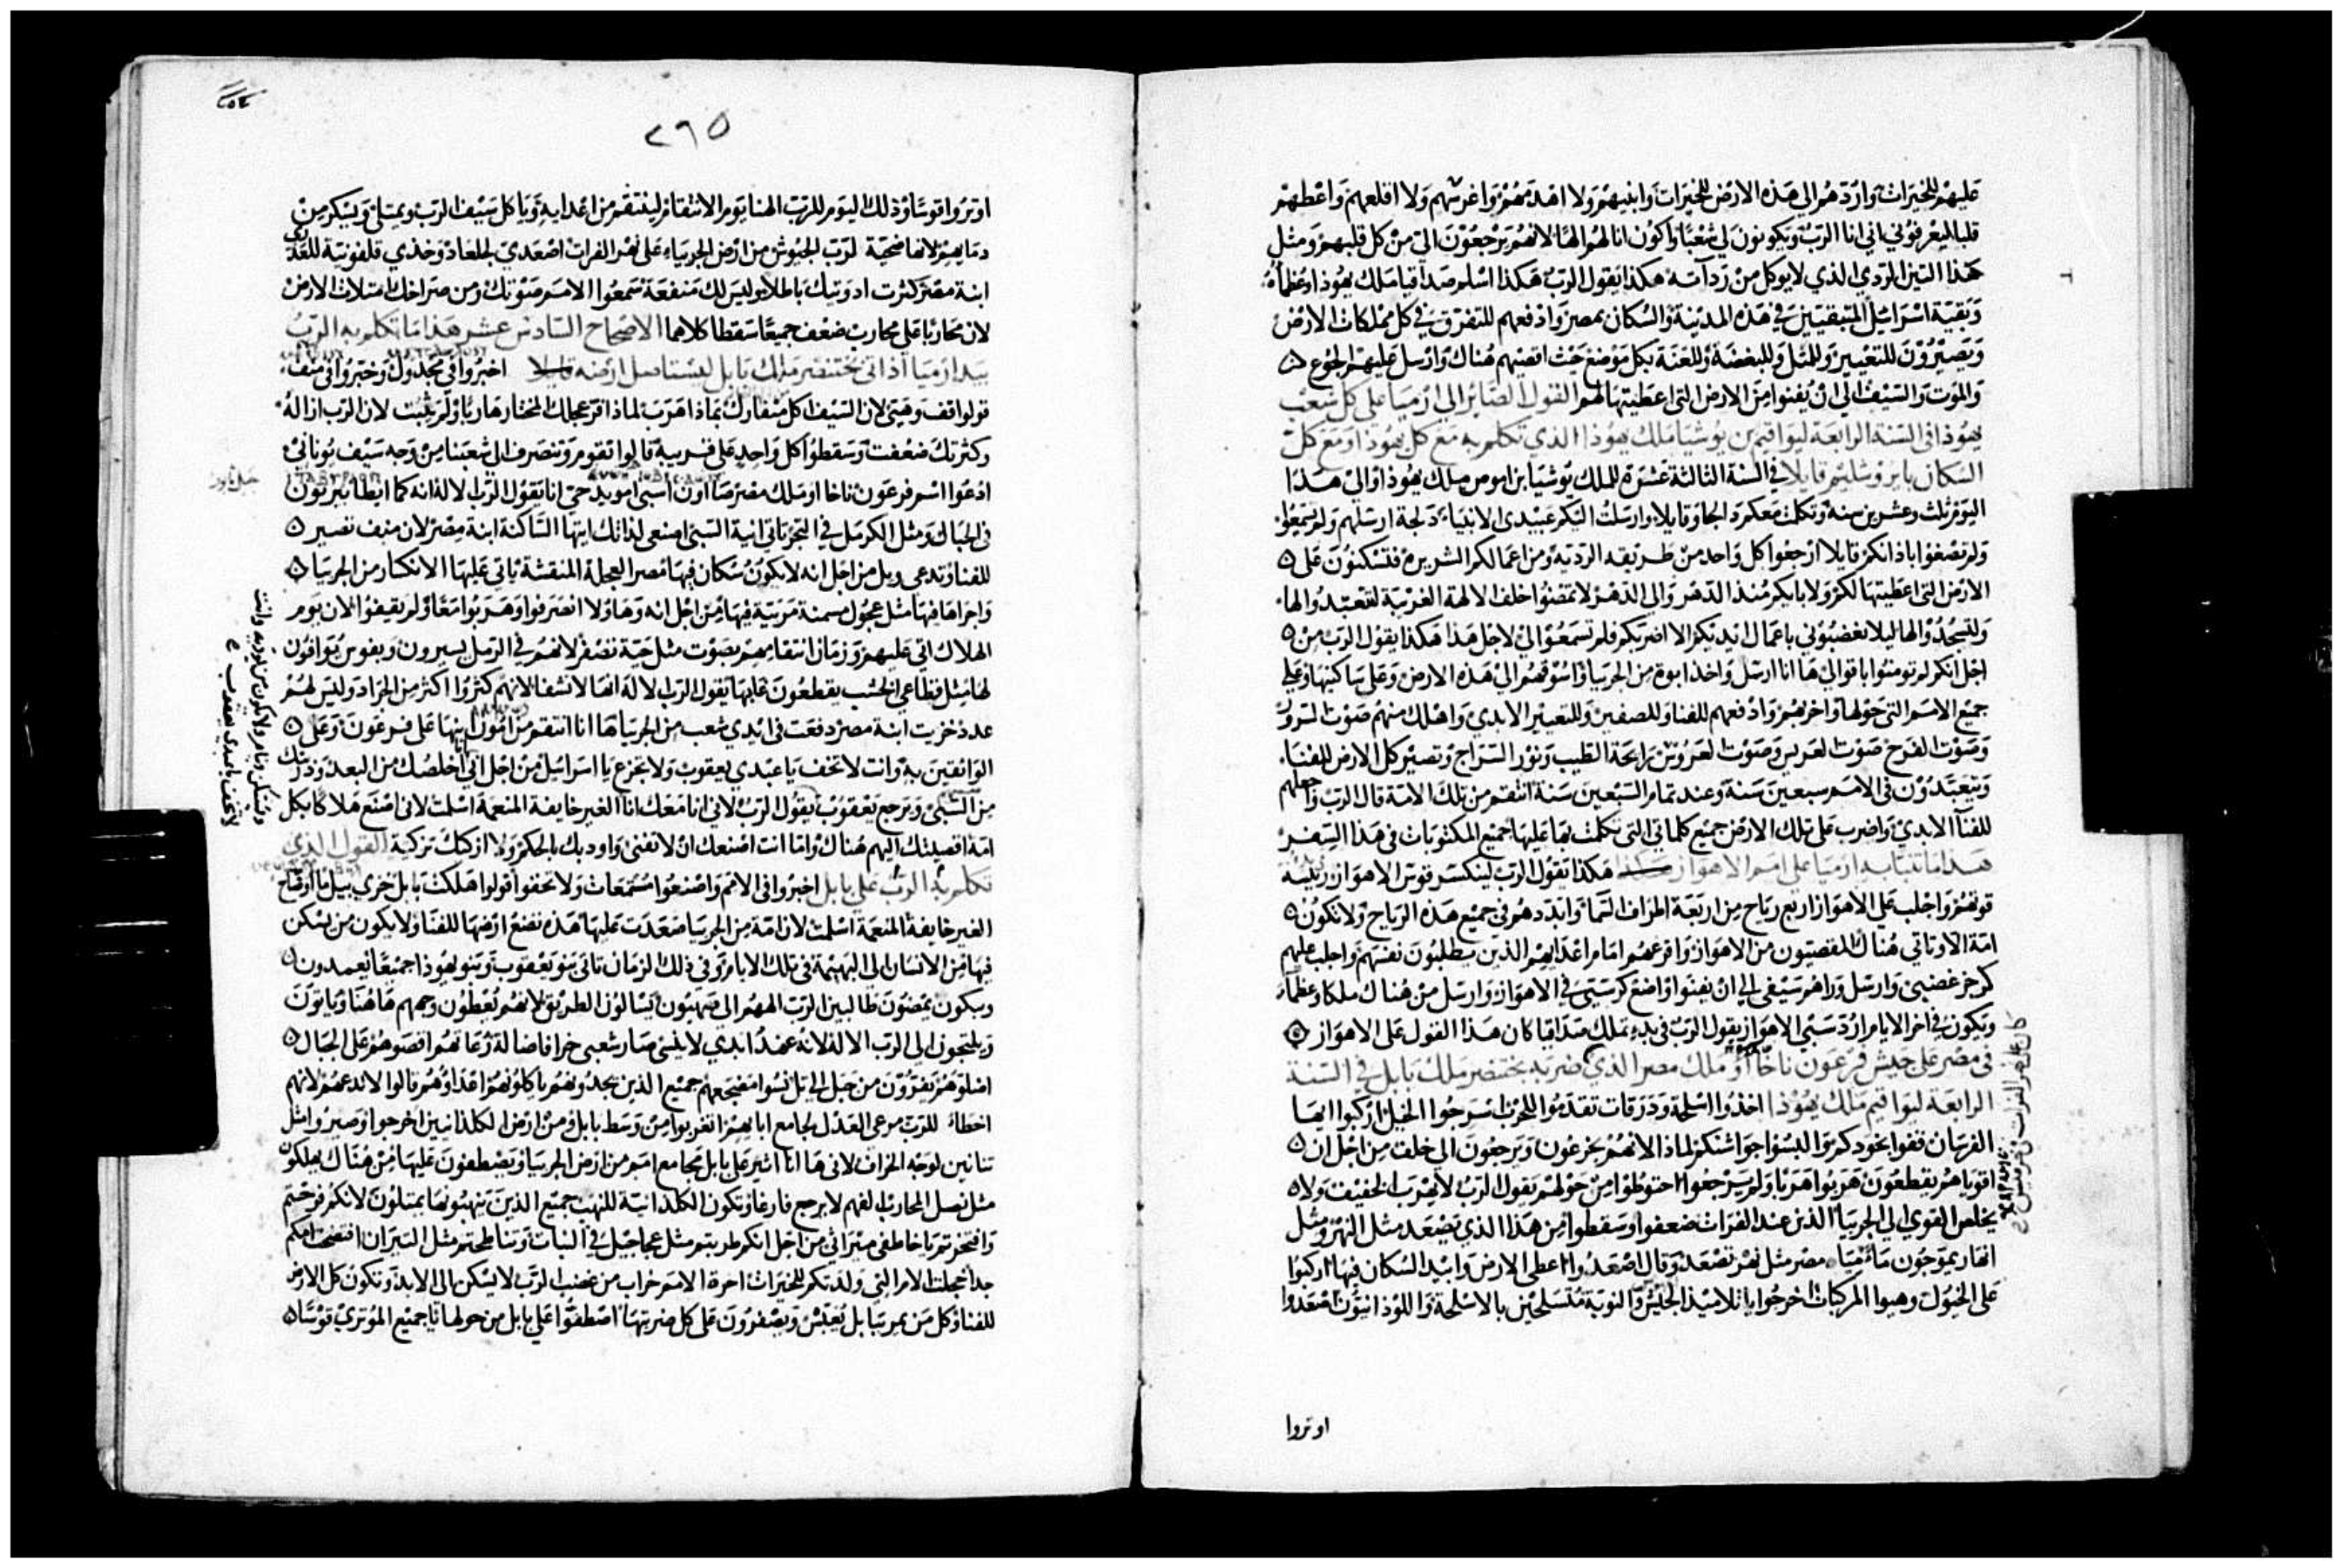 عليهم للخيرات وارردهم الى هذه الارض للخيرات وابنيهم ولا اهدمهم واغرسهم ولا اقلعهم واعطيهم
قلبا ليعرفوني اني انا الرب ويكونون لي شعبا واكون انا لهم الها لانهم يرجعون الي من كل قلبهم ومثل
هذا التين الردي الذي لا يوكل من ردآته هكذا يقول الرب هكذا اسلم صداقيا ملك يهوذا وعظماه
وبقية اسرائيل المتبقيين في هذه المدينة والسكان بمصر وادفعهم للتفرق في كل مملكات الارض
ويصيرون للتعيير وللمثل وللبغضة وللعنة بكل موضع حيث اقصيهم هناك وارسل عليهم الجوع
والموت والسيف الى ان يفنوا من الارض التى اعطيتها لهم القول الصاير الى ارميا على كل شعب
يهوذا فى السنة الرابعة ليواقيم بن يوشيا ملك يهوذا الذي تكلم به مع كل يهوذا ومع كل
السكان بايروشليم قايلا في السنة الثالثة عشرة للملك يوشيا بن اموص ملك يهوذا والى هذا
اليوم ثلث وعشرين سنة وتكلمت معكم دالجا وقايلا وارسلت اليكم عبيدى الانبياء دلجة ارسلهم ولم تسمعوا
ولم تصغوا باذانكم قايلا ارجعوا كل واحد من طريقه الردية ومن اعمالكم الشريرة فتسكنون على
الارض التى اعطيتها لكم ولابايكم منذ الدهر والى الدهر لا تمضوا خلف الالهة الغريبة لتتعبدوا لها
ولتسجدوا لها ليلا تغضبوني باعمال ايديكم الا اضربكم فلم تسمعوا الي لاجل هذا هكذا يقول الرب من
اجل انكم لم تومنوا باقوالي ها انا ارسل واخذ ابوة من الجربيا واسوقهم الى هذه الارض وعلى ساكنيها وعلى
جميع الامم التى حولها واخربهم وادفعهم للفنا وللصفير وللتعيير الابدي واهلك منهم صوت السرور
وصوت الفرح صوت العريس وصوت العروس رايحة الطيب ونور السراج وتصير كل الارض للفناء
ويتعبدون فى الامم سبعين سنة وعند تمام السبعين سنة انتقم من تلك الامة قال الرب واجعلهم
للفنآ الابدي واضرب على تلك الارض جميع كلماتي التى تكلمت بها عليها جميع المكتوبات فى هذا السفر
هذا ما تنبا به ارميا على امم الاهواز هكذا يقول الرب لينكسر قوس الاهواز رييسة
قوتهم واجلب على الاهواز اربع رياح من اربعة اطراف السما وابددهم في جميع هذه الرياح ولا تكون
امة الا وتاتي هناك المقصيون من الاهواز وافزعهم امام اعدايهم الذين يطلبون نفسهم واجلب عليهم
كرجز غضبي وارسل وراهم سيفى الى ان يفنوا واضع كرسيي في الاهواز وارسل من هناك ملكا وعظمآء
ويكون في اخر الايام اردّ سبى الاهواز يقول الرب فى بدء ملك صداقيا كان هذا القول على الاهواز
فى مصر على جيش فرعون ناخاو ملك مصر الذي ضربه بختنصر ملك بابل في السنة
الرابعة ليواقيم ملك يهوذا اخذوا اسلحة ودرقات تقدموا للحرب اسرجوا الخيل اركبوا ايها
الفرسان قفوا بخودكم والبسوا جواشنكم لماذا لانهم يجزعون ويرجعون الى خلف من اجل ان
اقوياهم يقطعون هربوا هربا ولم يرجعوا احتوطوا من حولهم يقول الرب لا يهرب الخفيف ولا
يخلص القوي الى الجربيا الذين عند الفرات ضعفوا وسقطوا من هذا الذي يصعد مثل النهر ومثل
انهار يموجون مآء مياه مصر مثل نهر تصعد وقال اصعدوا اغطى الارض وابيد السكان فيها اركبوا
على الخيول وهيوا المركبات اخرجوا يا تلاميذ الجيش والنوبة متسلحين بالاسلحة واللوذانيون اصعدوا
اوتروا
٢٦٥
اوتروا قوسا وذلك اليوم للرب الهنا يوم الانتقام لينتقم من اعدايه وياكل سيف الرب ويمتلى ويسكر من
دمايهم لانها ضحية لرب الجيوش من ارض الجربياء على نهر الفرات اصعدي لجلعاد وخذي قلفونية للعذرى
ابنة مصر كثرت ادويتك باطلا وليس لك منفعة سمعوا الامم صوتك ومن صراخك امتلات الارض
لان محاربا على محارب ضعف جميعا سقطا كلاهما الاصحاح السادس عشر هذا ما تكلم به الرب
بيد ارميا اذ اتى بختنصر ملك بابل ليستاصل ارضه قايلا اخبروا في مجدول وخبروا فى منف
قولوا قف وهيئ لان السيف اكل سفارك لماذا هرب لماذا قر عجلك المختار هاربا ولم يثبت لان الرب ازاله
وكثرتك ضعفت وسقطوا كل واحد على قريبه قالوا نقوم وننصرف الى شعبنا من وجه سيف يوناني
ادعوا اسم فرعون ناخاو ملك مصر صااون اسبى امويد حي انا يقول الرب الاله انه كما ايطابيريون
فى الجبال ومثل الكرمل في البحر تاتي انية السبي اصنعى لذاتك ايتها الساكنة ابنة مصر لان منف تصير
للفنا وتدعى ويل من اجل انه لا يكون سكان فيها مصر العجلة المنقشة ياتي عليها الانكسار من الجربيا
واجراها فيها مثل عجول مسمنة مربية فيها من اجل انه وهاولا انصرفوا وهربوا معا ولم يقيفوا لان يوم
الهلاك اتى عليهم وزمان انتقامهم بصوت مثل حية تصفر لانهم في الرمل يسيرون وبفوس يوافون
لها مثل قطاعى الخشب يقطعون غابها يقول الرب الاله انها لا تشفا لانهم كثروا اكثر من الجراد وليس لهم
عدد خزيت ابنة مصر دفعت فى ايدي شعب من الجربيا ها انا انتقم من امون ابنها على فرعون وعلى
الواثقين به وانت لا تخف يا عبدي يعقوب ولا تجزع يا اسرائيل من اجل اني اخلصك من البعد وذريتك
من السبي ويرجع يعقوب يقول الرب لاني انا معك انا الغير خايفة المنعمة اسلمت لانى اصنع هلاكا بكل
امة اقصيتك اليهم هناك واما انت اصنعك ان لا تفنى واودبك بالحكم ولا ازكيك تزكية القول الذي
تكلم به الرب على بابل اخبروا فى الامم واصنعوا مستمعات ولا تخفوا قولوا هلكت بابل خزي بيل
الغير خايفة المنعمة اسلمت لان امة من الجربيا صعدت عليها هذه تضع ارضها للفنا ولا يكون من يسكن
فيها من الانسان الى البهيمة فى تلك الايام وفى ذلك الزمان تاتى بنو يعقوب وبنو يهوذا جميعا يعمدون
ويبكون يمضون طالبين الرب الههم الى صهيون يسالون الطريق لانهم يعطون وجههم هاهنا وياتون
ويلتجون الى الرب الاله لانه عهد ابدي لا ينسى صار شعبى خرافا ضالة رعاتهم اقصوهم على الجبال
اضلوهم يفرون من جبل الى تل نسوا مضجعهم جميع الذين يجدونهم ياكلونهم اعداوهم قالوا لا ندعهم لانهم
اخطاء للرب مرعى العدل لجامع ابايهم اتغربوا من وسط بابل ومن ارض الكلدانيين اخرجوا وصيروا مثل
تنانين لوجه الخراف لانى ها انا اثير على بابل مجامع امم من ارض الجربيا ويصطفون عليها من هناك يهلكون
مثل نصل المحارب الفهم لا يرجع فارغا وتكون الكلدانية للنهب جميع الذين ينهبونها يمتلون لانكم فرحتم
وافتخرتم يا خاطفى ميراثي من اجل انكم طربتم مثل عجاجيل في النبات وتناطحتم مثل الثيران افتضحت امكم
جدا خجلت الام التي ولدتكم للخيرات اخرة الامم خراب من غضب الرب لا يسكن الى الابد وتكون كل الارض
للفنا وكل من يمر ببابل يعبس ويصفرون على كل ضربتها اصطفوا على بابل من حولها يا جميع الموتري قوسا